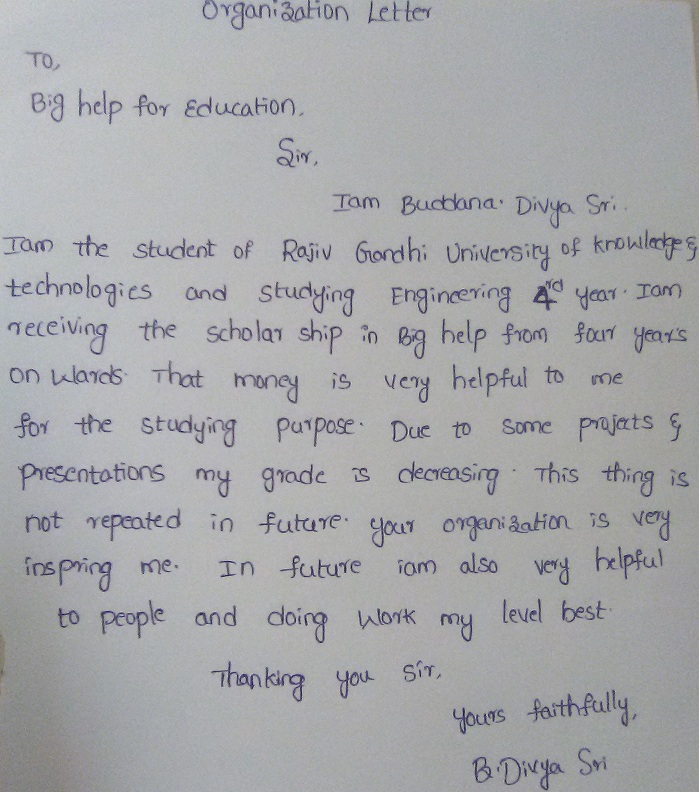 Organization Letter
To,
Big help for Education.
Sir,
Iam Buddana. Divya Sri..
Iam the student of Rajiv Gandhi University of knowledge &
technologies and studying Engineering 4rd year. Iam
receiving the scholar ship in Big help from four years
on wards. That money is very helpful to me
for the studying purpose. Due to some projects &
presentations my grade is decreasing. This thing is
not repeated in future. your organization is very
inspring me. In future iam also very helpful
to people and doing work my level best.
Thanking you sir,
yours faithfully,
B.Divya Sri